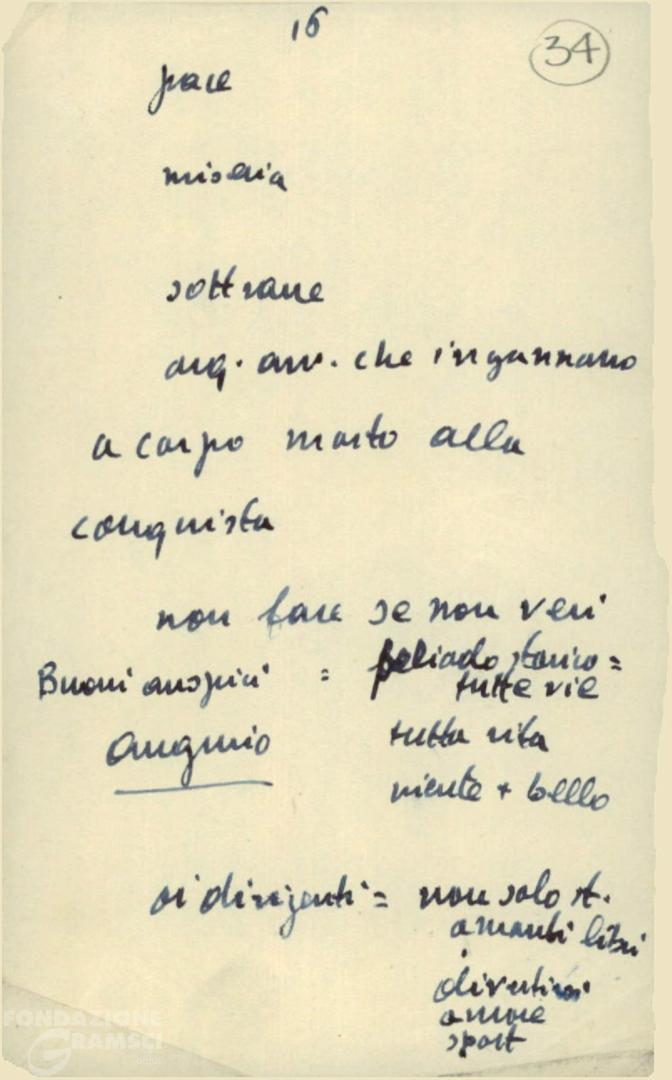 16
34
pace
miseria
sottrarre
arg. avv. che ingannano
a corpo morto alla
conquista
non fare se non veri
Buoni auspici = periodo storico =
tutte vie
augurio
tutta vita
niente + bello
ai dirigenti = non solo st.
amanti libri
divertirsi
amore
sport
FONDAZIONE
GRAMSCI